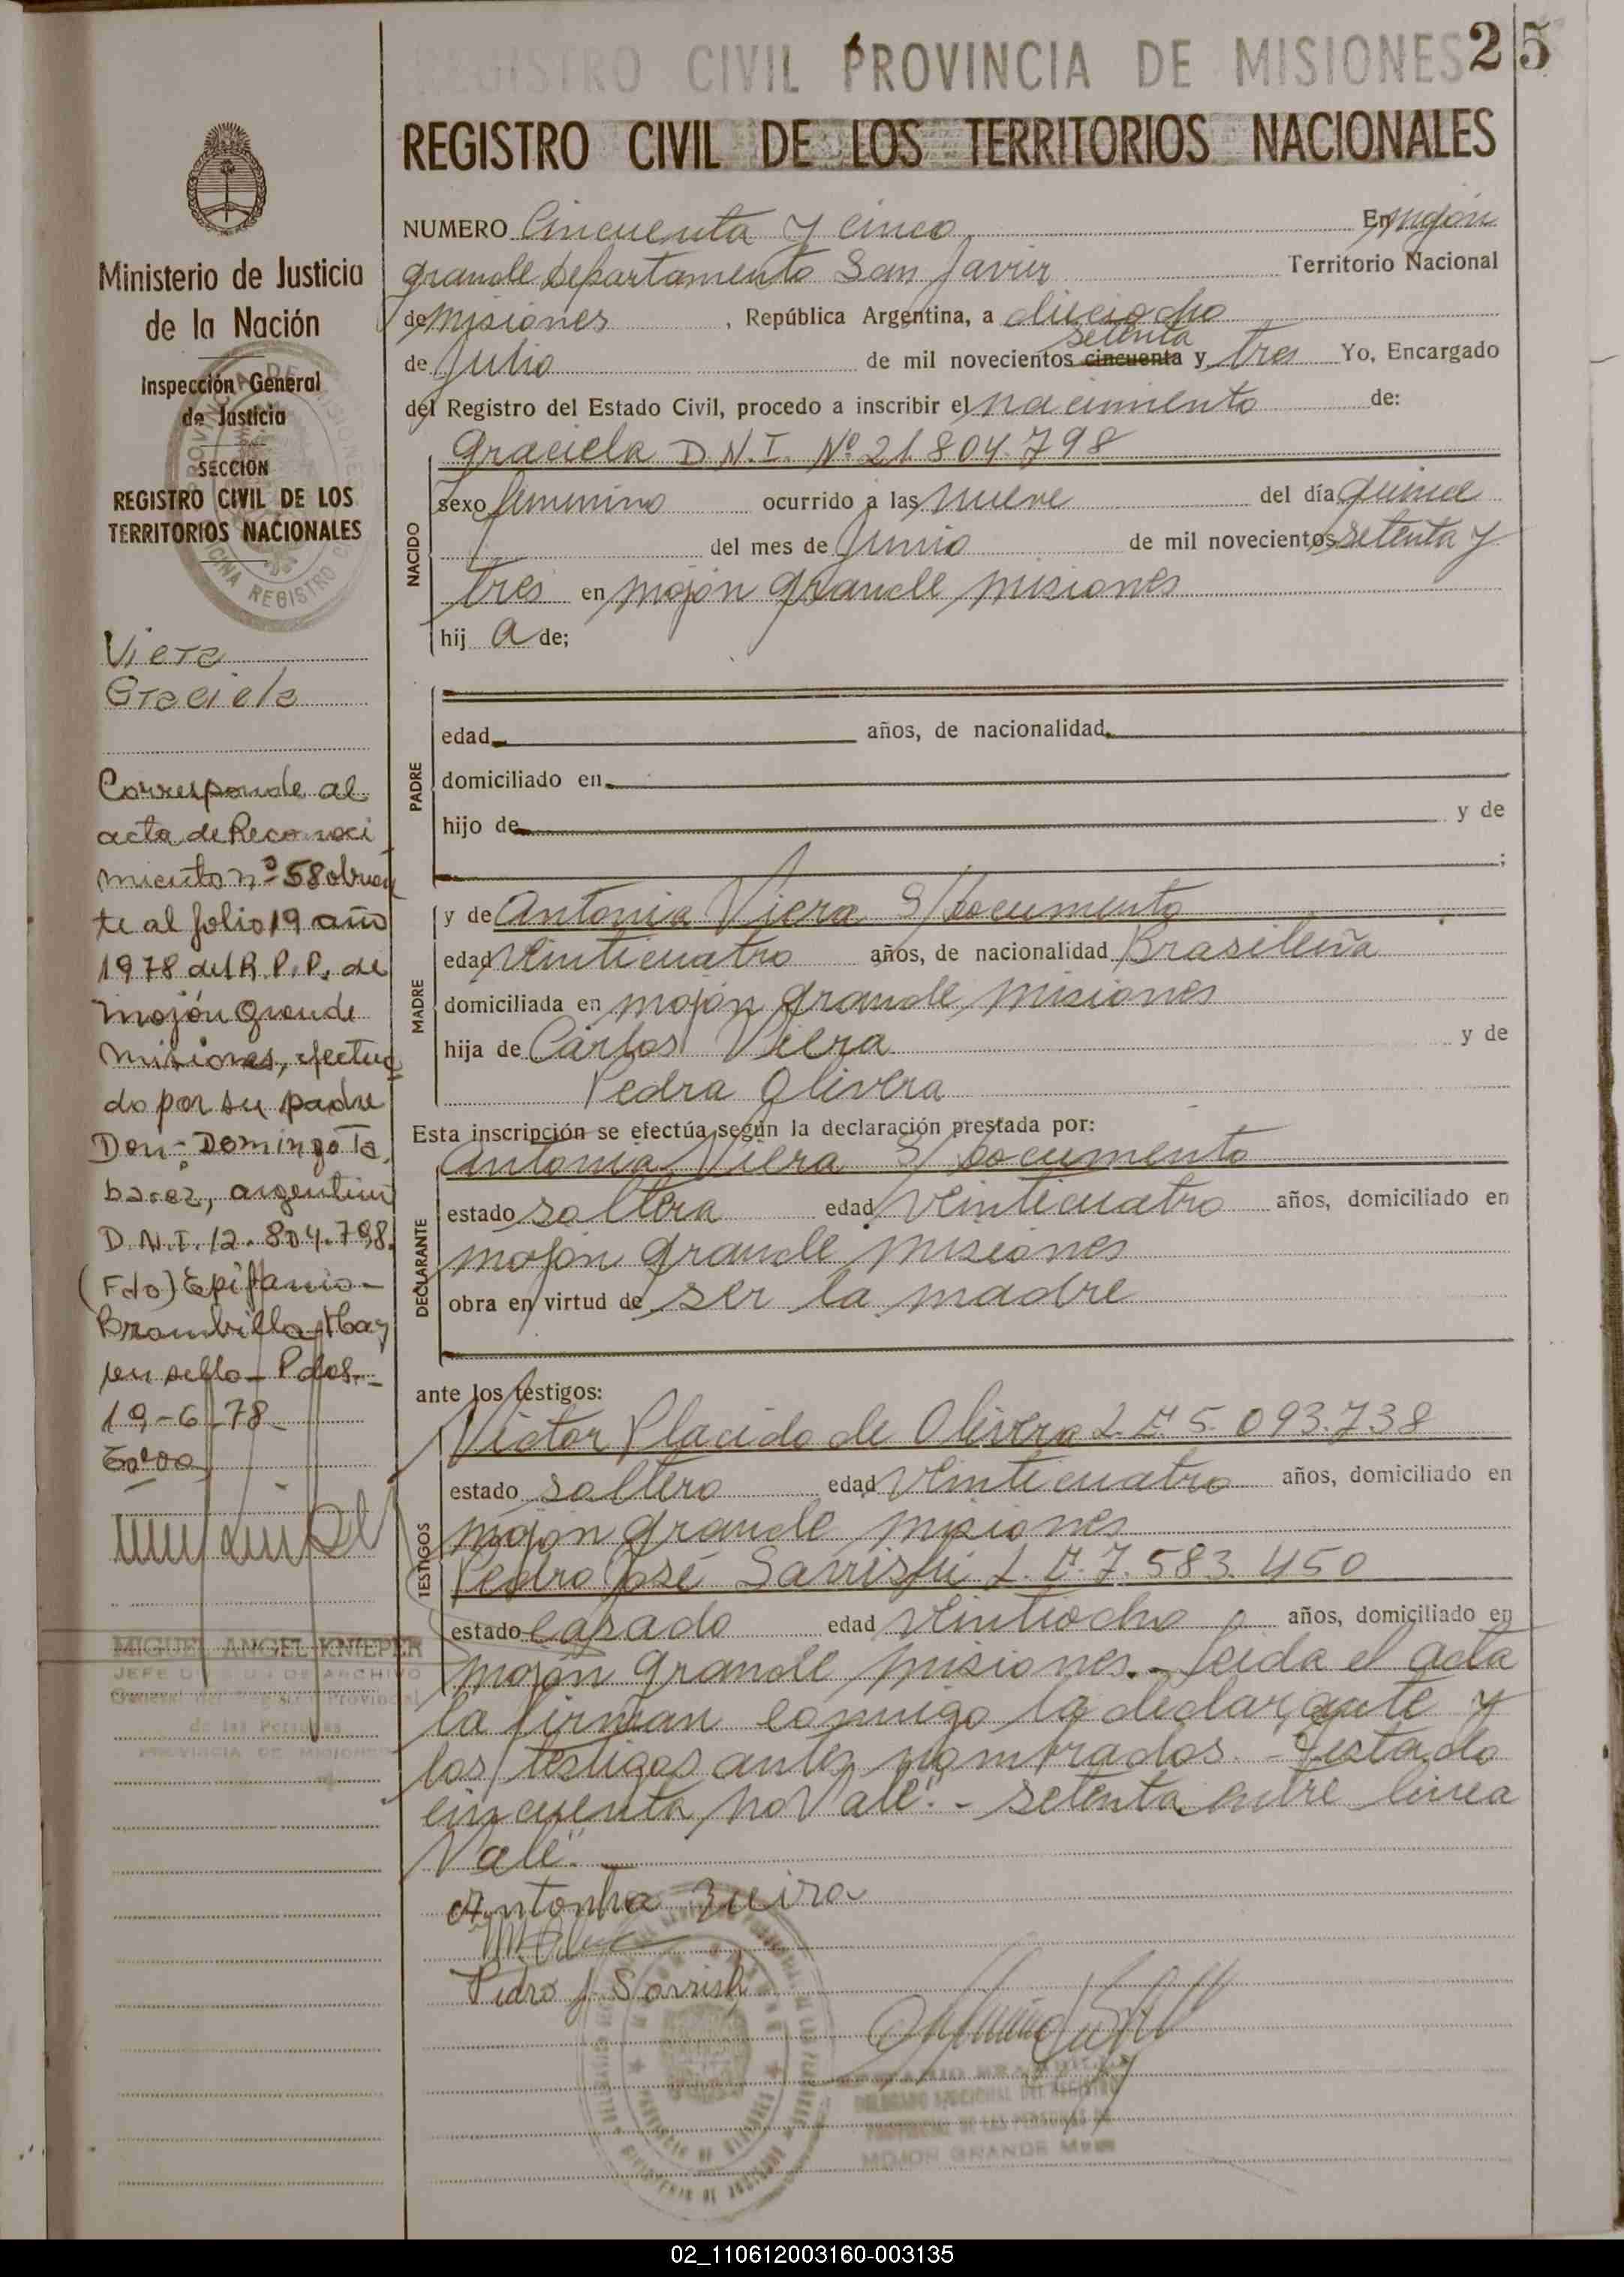 REGISTRO CIVIL PROVINCIA DE MISIONES 25
REGISTRO CIVIL DE LOS TERRITORIOS NACIONALES
Ministerio de Justicia
de la Nación
Inspección General
de Justicia
SECCION
REGISTRO CIVIL DE LOS
TERRITORIOS NACIONALES
Viera
Graciela
Corresponde al
acta de Reconoci
miento nº 58 obran
te al folio 19 año
1978 del R.P.P. de
Mojón Grande
Misiones, efectua
do por su padre
Don - Domingo Ta
barez, argentino
D.N.I. 12.804.798.
(Fdo) Epifanio -
Brambilla - Hay
un sello - Pdas. -
19-6-78
MIGUEL ANGEL KNIEPER
JEFE DIVISION DE ARCHIVO
General del Registro Provincial
de las Personas
PROVINCIA DE MISIONES
NUMERO Cincuenta y cinco En mojón
grande Departamento San Javier Territorio Nacional
de Misiones, República Argentina, a dieciocho
setenta
de Julio de mil novecientos cincuenta y tres Yo, Encargado
del Registro del Estado Civil, procedo a inscribir el nacimiento de:
NACIDO
Graciela D.N.I. Nº 21.804.798
sexo femenino ocurrido a las nueve del día quince
del mes de Junio de mil novecientos setenta y
tres en mojón grande misiones
hij a de;
PADRE
edad años, de nacionalidad
domiciliado en
hijo de y de
;
MADRE
y de Antonia Viera S/Documento
edad Veinticuatro años, de nacionalidad Brasileña
domiciliada en mojón grande misiones
hija de Carlos Viera y de
Pedra Olivera
Esta inscripción se efectúa según la declaración prestada por:
DECLARANTE
Antonia Viera S/Documento
estado soltera edad Veinticuatro años, domiciliado en
mojón grande misiones
obra en virtud de ser la madre
ante los testigos:
TESTIGOS
Victor Placido de Olivera L.E. 5.093.738
estado soltero edad Veinticuatro años, domiciliado en
mojón grande misiones
Pedro José L.E. 7.583.450
estado casado edad Veintiocho años, domiciliado en
mojón grande misiones. - Leida el acta
la firman conmigo la declarante y
los testigos antes nombrados. - Testado
cincuenta no Vale". - setenta entre linea
Vale".
Antonha
Pedro J.
MOJON GRANDE
02_110612003160-003135